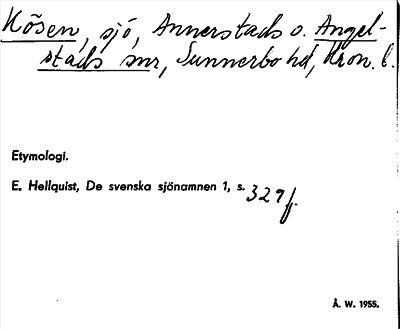 Kösen, sjö, Annerstads o. Angel-
stads snr, Sunnerbo hd, Kron. l.
Etymologi.
E. Hellquist, De svenska sjönamnen 1, s. 329 f.
Å. W. 1955.